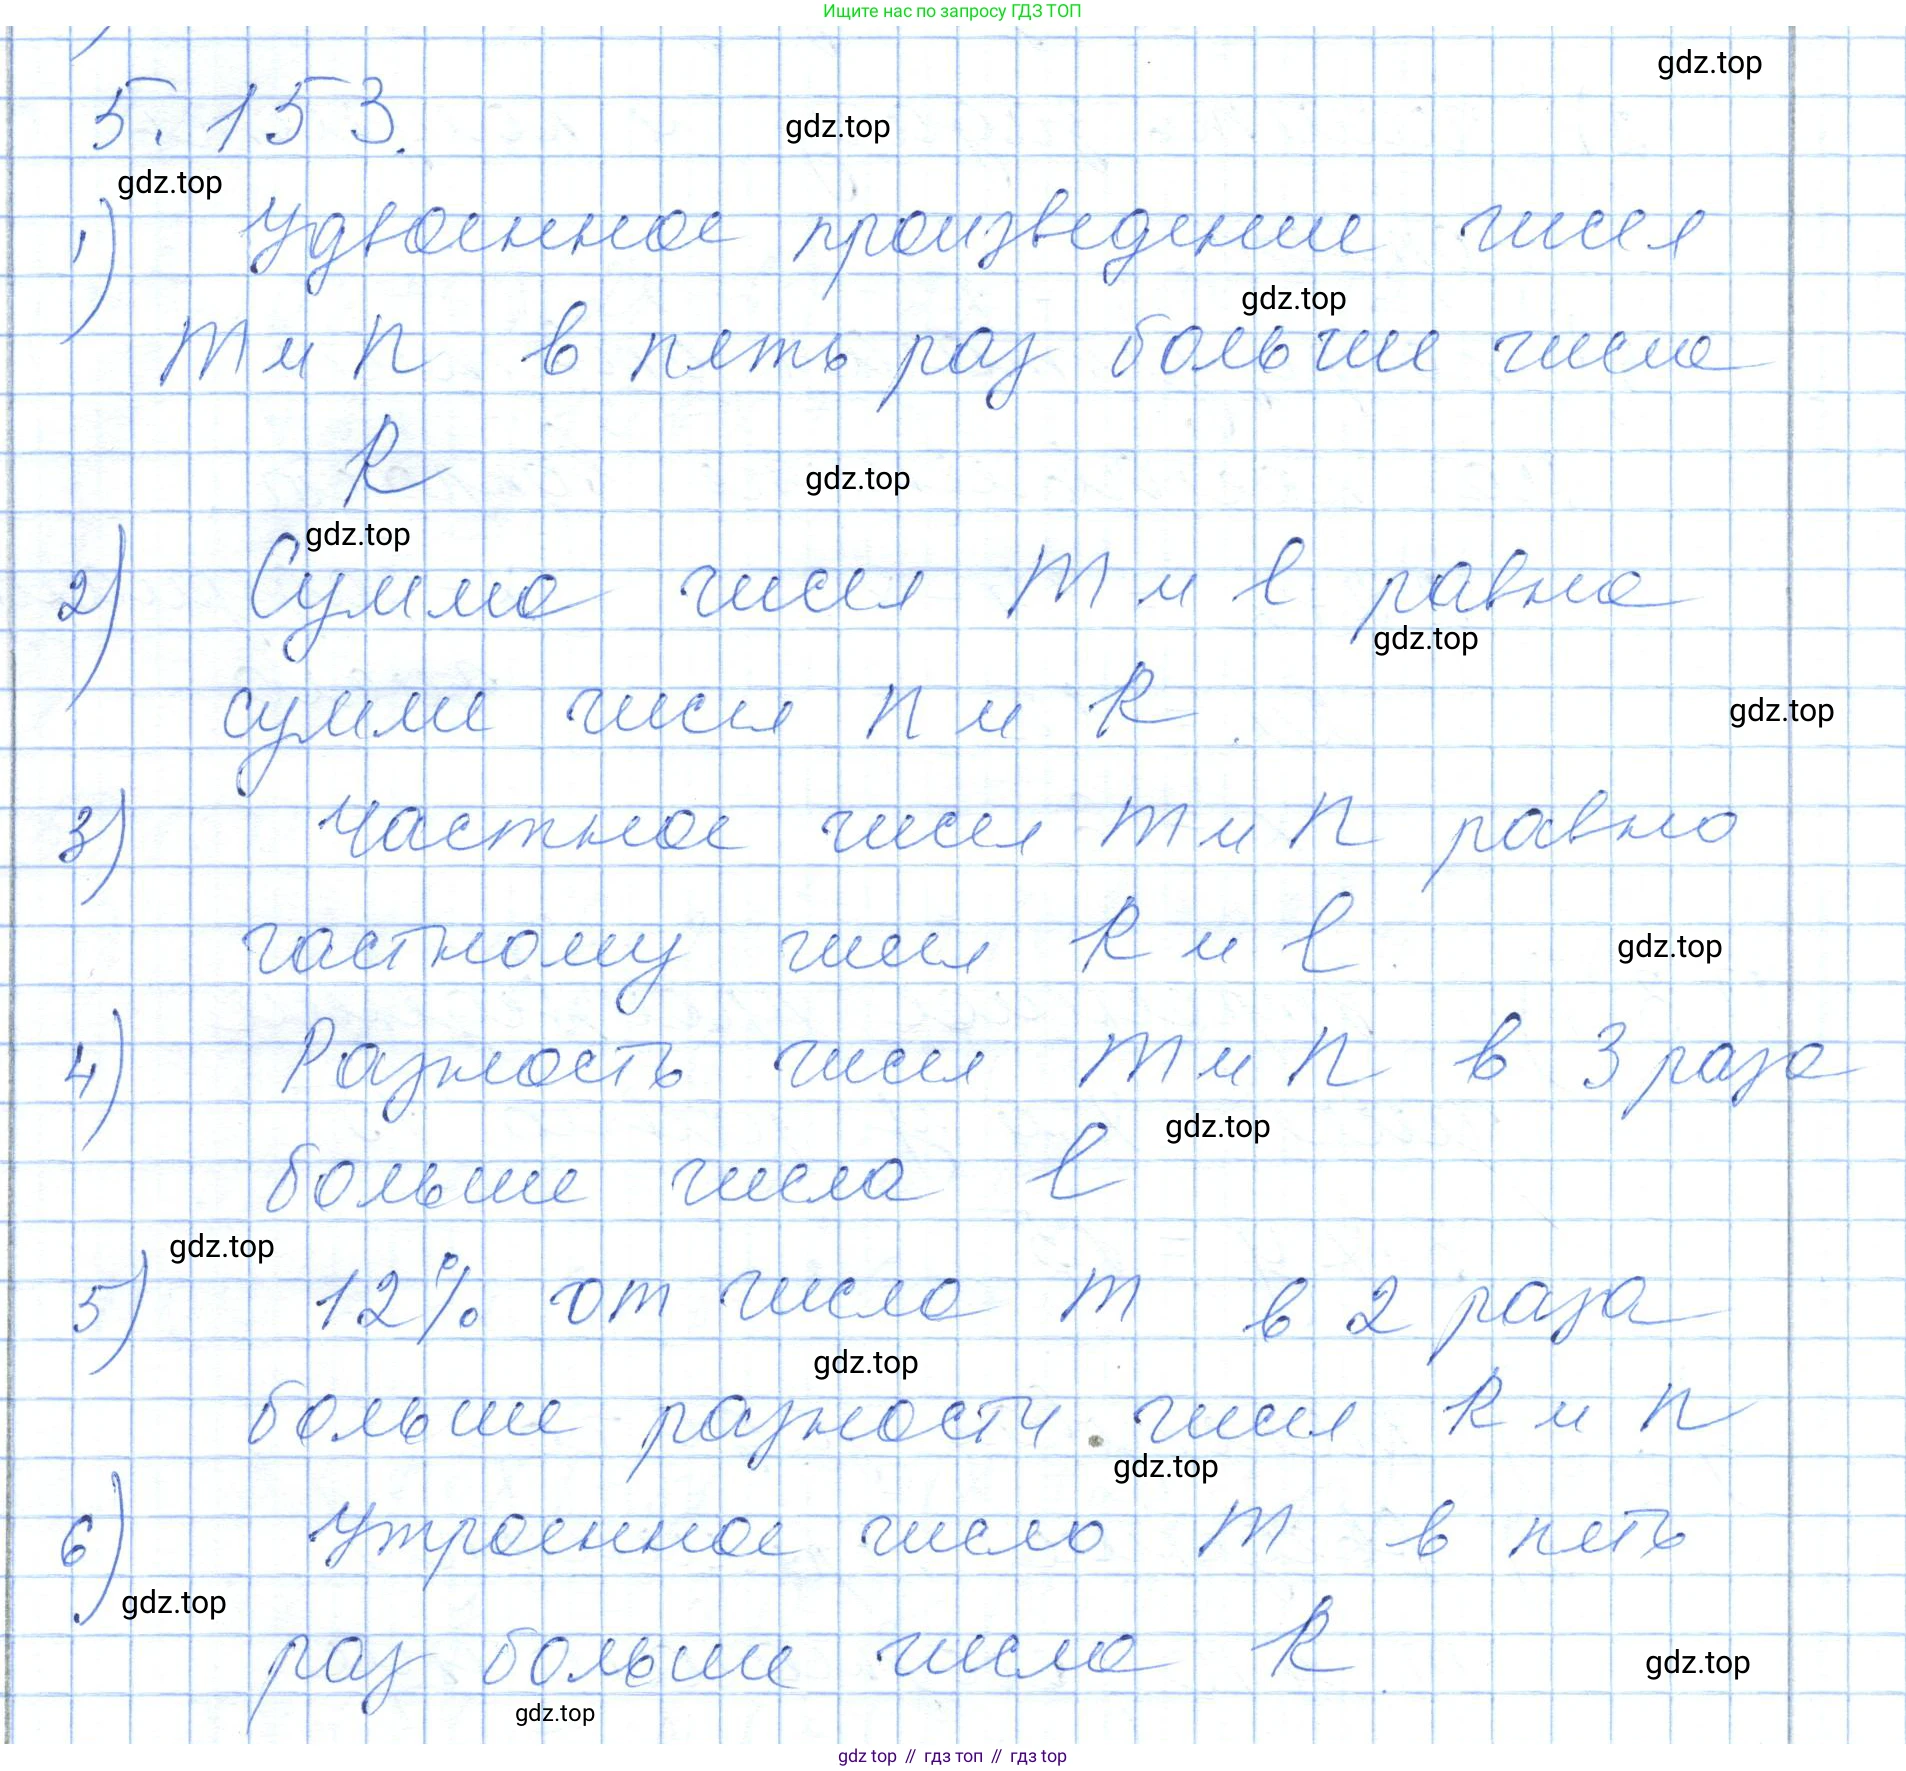 Ищите нас по запросу ГДЗ ТОП
gdz.top
5.153.
gdz.top
gdz.top
1) Удвоенное произведение чисел
gdz.top
m и n в пять раз больше числа
k
gdz.top
gdz.top
2) Сумма чисел m и l равна
gdz.top
сумме чисел n и k.
gdz.top
3) Частное чисел m и n равно
частному чисел k и l.
gdz.top
4) Разность чисел m и n в 3 раза
gdz.top
больше числа l
gdz.top
5) 12% от числа m в 2 раза
gdz.top
больше разности чисел k и n
gdz.top
6) Утроенное число m в пять
gdz.top
раз больше числа k.
gdz.top
gdz.top
gdz top // гдз топ // гдз top